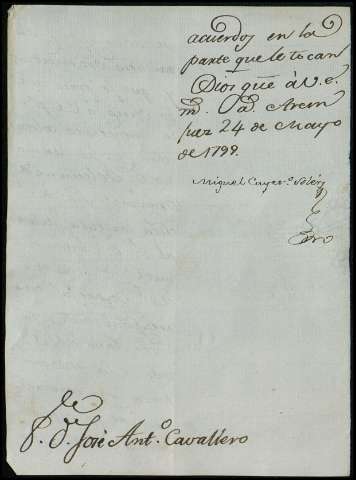 acuerdos en la
parte que le tocan
Dios gūe à V.e.
m.s a.s Aran
juez 24 de Mayo
de 1799.
Miguel Cayet.º Solér
S.r D.n José Ant.º Cavallero